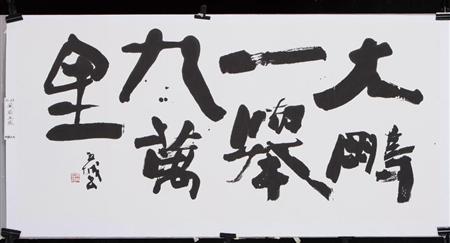 大鵬
一擧
九萬
里